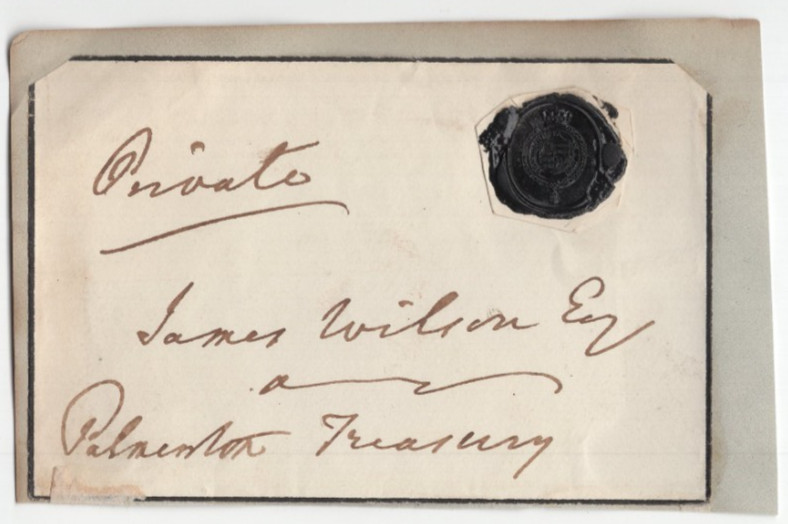 Private
James Wilson Esq
Palmerston Treasury